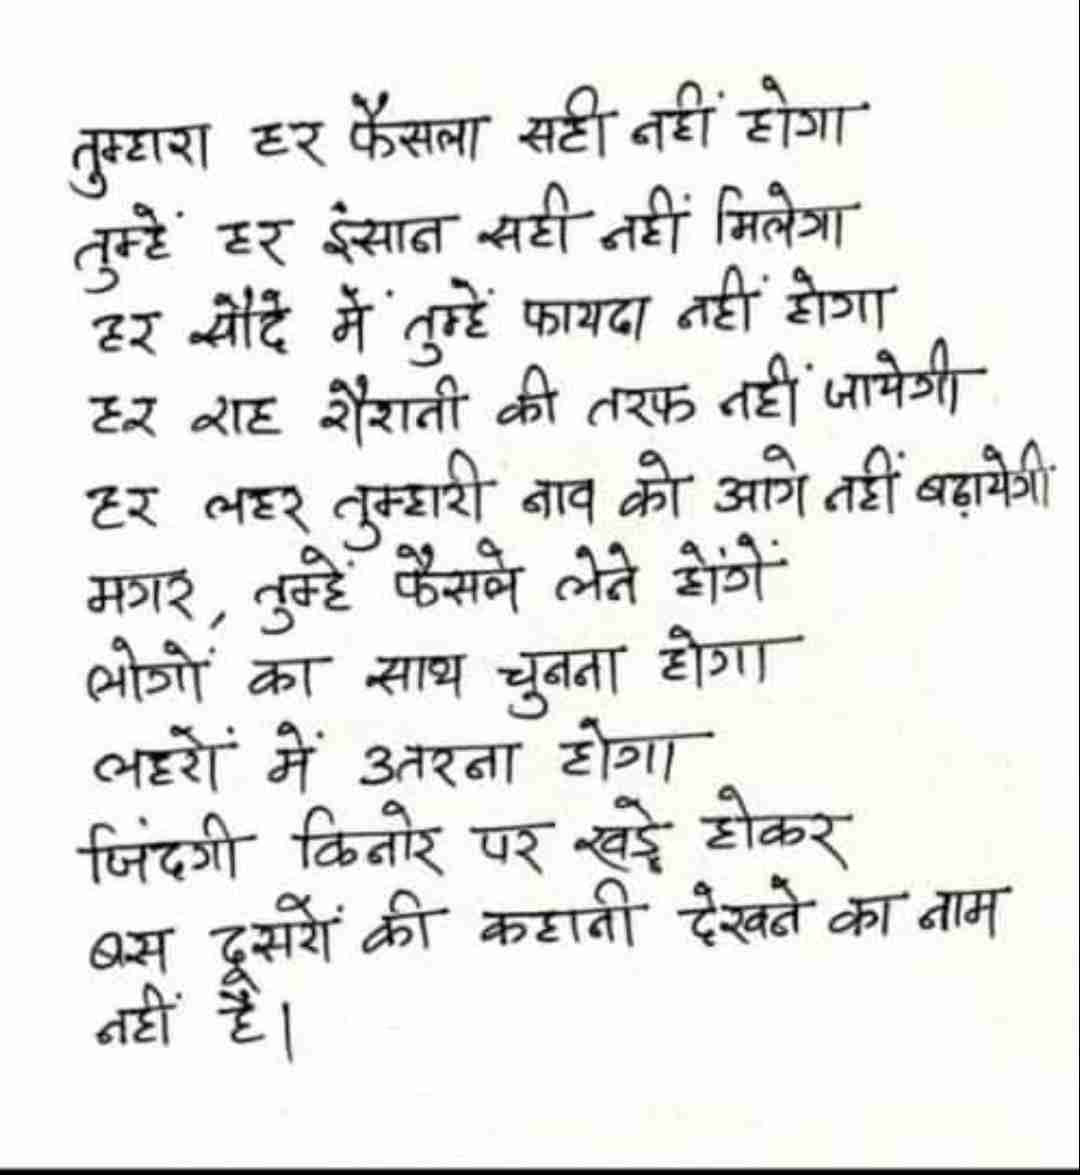 तुम्हारा हर फैसला सही नहीं होगा
तुम्हें हर इंसान सही नहीं मिलेगा
हर सौदे में तुम्हें फायदा नहीं होगा
हर राह रौशनी की तरफ नहीं जायेगी
हर लहर तुम्हारी नाव को आगे नहीं बढ़ायेगी
मगर, तुम्हें फैसले लेने होंगें
लोगों का साथ चुनना होगा
लहरों में उतरना होगा
जिंदगी किनारे पर खड़े होकर
बस दूसरों की कहानी देखने का नाम
नहीं है।